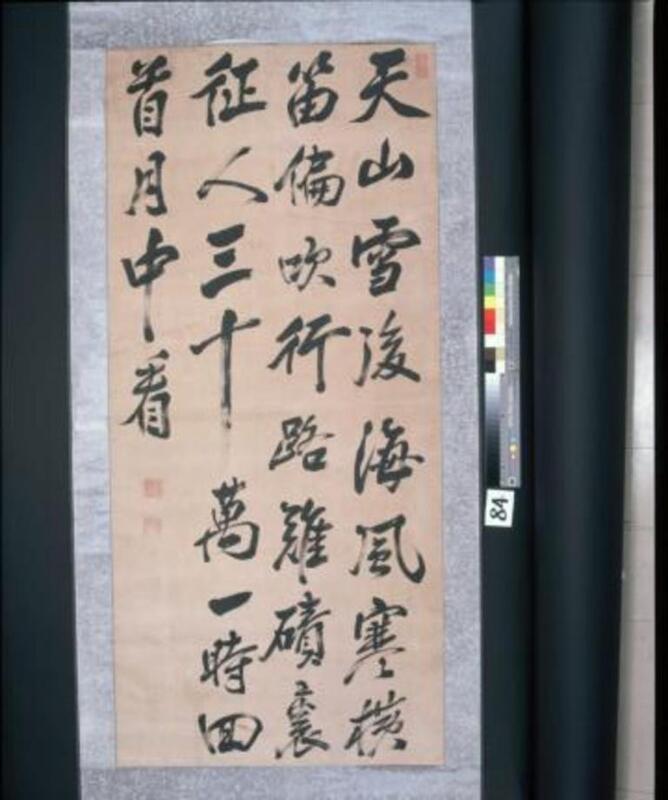 天山雪後海風寒橫
笛偏吹行路難磧裏
征人三十萬一時回
首月中看
84